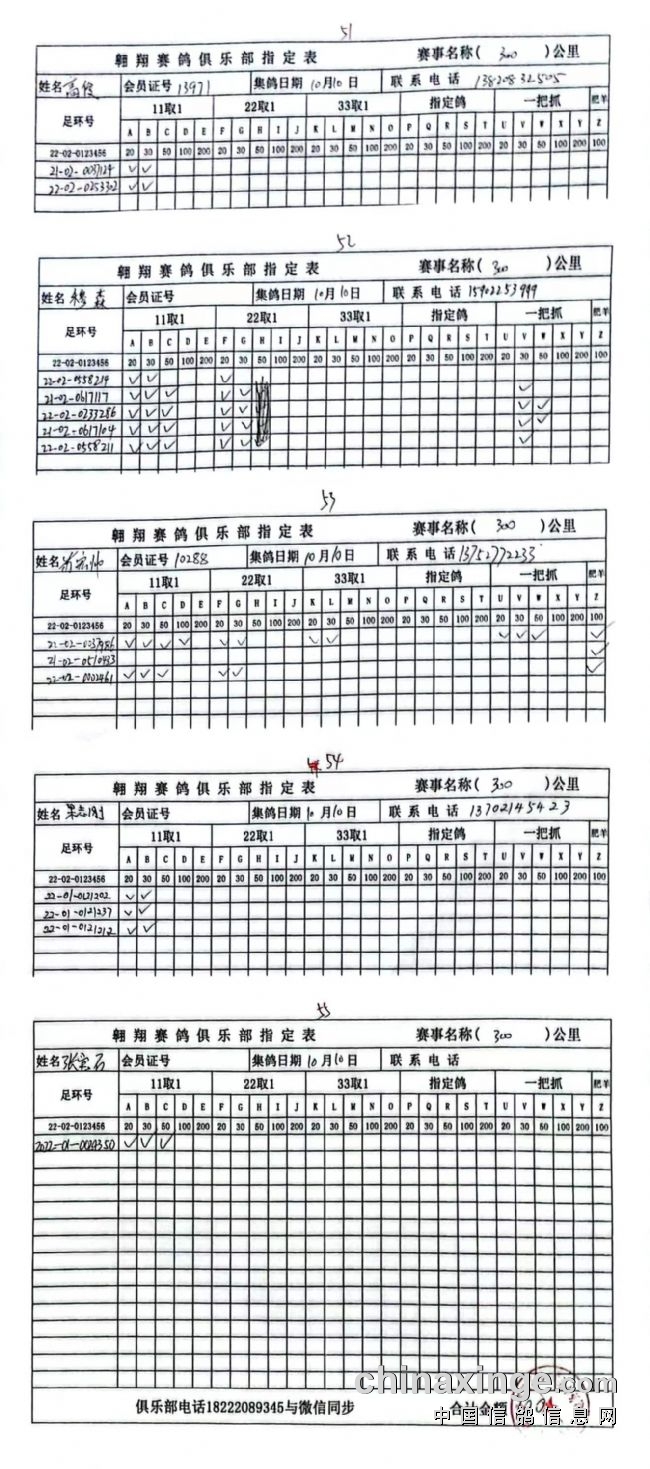 51
翱翔赛鸽俱乐部指定表 赛事名称( 300 )公里
姓名 高俊 会员证号 13971 集鸽日期 10月10日 联系电话 13820832505
足环号 11取1 22取1 33取1 指定鸽 一把抓 肥羊
A B C D E F G H I J K L M N O P Q R S T U V W X Y Z
22-02-0123456 20 30 50 100 200 20 30 50 100 200 20 30 50 100 200 20 30 50 100 200 20 30 50 100 200 100
21-02-0037124 ✓ ✓
22-02-0253302 ✓ ✓
52
翱翔赛鸽俱乐部指定表 赛事名称( 300 )公里
姓名 穆森 会员证号 集鸽日期 10月10日 联系电话 15902253999
足环号 11取1 22取1 33取1 指定鸽 一把抓 肥羊
A B C D E F G H I J K L M N O P Q R S T U V W X Y Z
22-02-0123456 20 30 50 100 200 20 30 50 100 200 20 30 50 100 200 20 30 50 100 200 20 30 50 100 200 100
22-02-0558214 ✓ ✓ ✓
21-02-0617117 ✓ ✓ ✓ ✓ ✓ ✓
22-02-0233286 ✓ ✓ ✓ ✓ ✓ ✓ ✓
21-02-0617104 ✓ ✓ ✓ ✓ ✓ ✓ ✓
22-02-0558211 ✓ ✓ ✓ ✓ ✓ ✓
53
翱翔赛鸽俱乐部指定表 赛事名称( 300 )公里
姓名 会员证号 10288 集鸽日期 10月10日 联系电话 13752772233
足环号 11取1 22取1 33取1 指定鸽 一把抓 肥羊
A B C D E F G H I J K L M N O P Q R S T U V W X Y Z
22-02-0123456 20 30 50 100 200 20 30 50 100 200 20 30 50 100 200 20 30 50 100 200 20 30 50 100 200 100
✓ ✓ ✓ ✓ ✓ ✓ ✓ ✓ ✓ ✓ ✓ ✓
21-02-0510433 ✓
22-02-0002461 ✓ ✓ ✓ ✓ ✓ ✓
54
翱翔赛鸽俱乐部指定表 赛事名称( 300 )公里
姓名 果志刚 会员证号 集鸽日期 10月10日 联系电话 13702145423
足环号 11取1 22取1 33取1 指定鸽 一把抓 肥羊
A B C D E F G H I J K L M N O P Q R S T U V W X Y Z
22-02-0123456 20 30 50 100 200 20 30 50 100 200 20 30 50 100 200 20 30 50 100 200 20 30 50 100 200 100
22-01-0121202 ✓ ✓
22-01-0121237 ✓ ✓
22-01-0121212 ✓ ✓
55
翱翔赛鸽俱乐部指定表 赛事名称( 300 )公里
姓名 张宝石 会员证号 集鸽日期 10月10日 联系电话
足环号 11取1 22取1 33取1 指定鸽 一把抓 肥羊
A B C D E F G H I J K L M N O P Q R S T U V W X Y Z
22-02-0123456 20 30 50 100 200 20 30 50 100 200 20 30 50 100 200 20 30 50 100 200 20 30 50 100 200 100
✓ ✓ ✓
俱乐部电话18222089345与微信同步 合计金额
chinaxinge.com
中国信鸽信息网